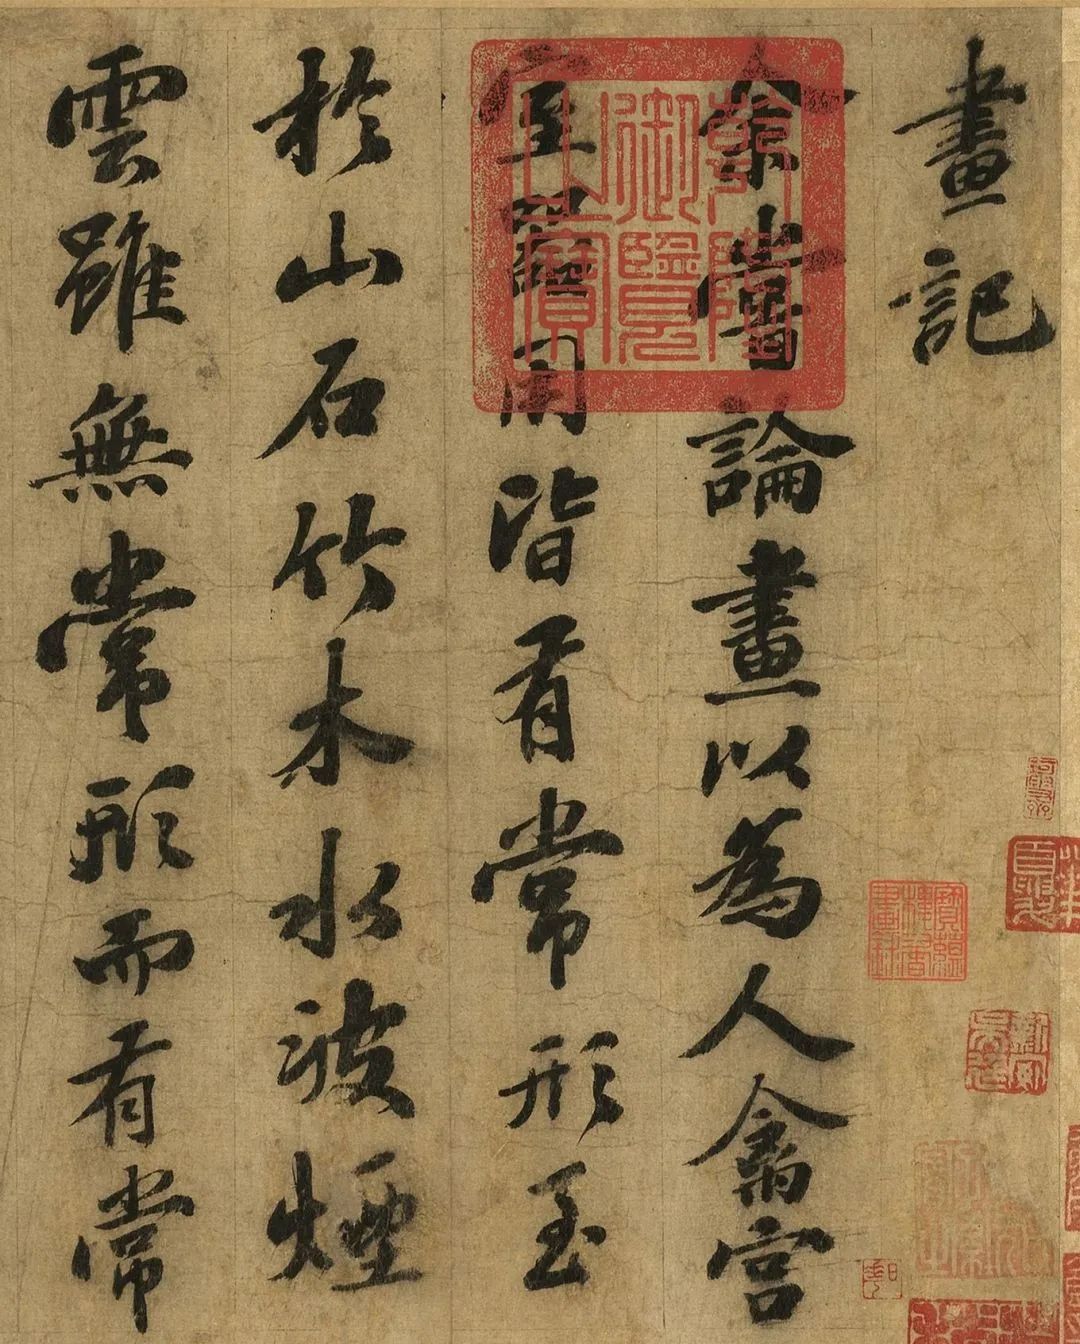 畫記
余嘗論畫以為人禽宮
室器用皆有常形至
於山石竹木水波煙
雲雖無常形而有常
乾隆御覽之寶
寶蘊樓書畫錄